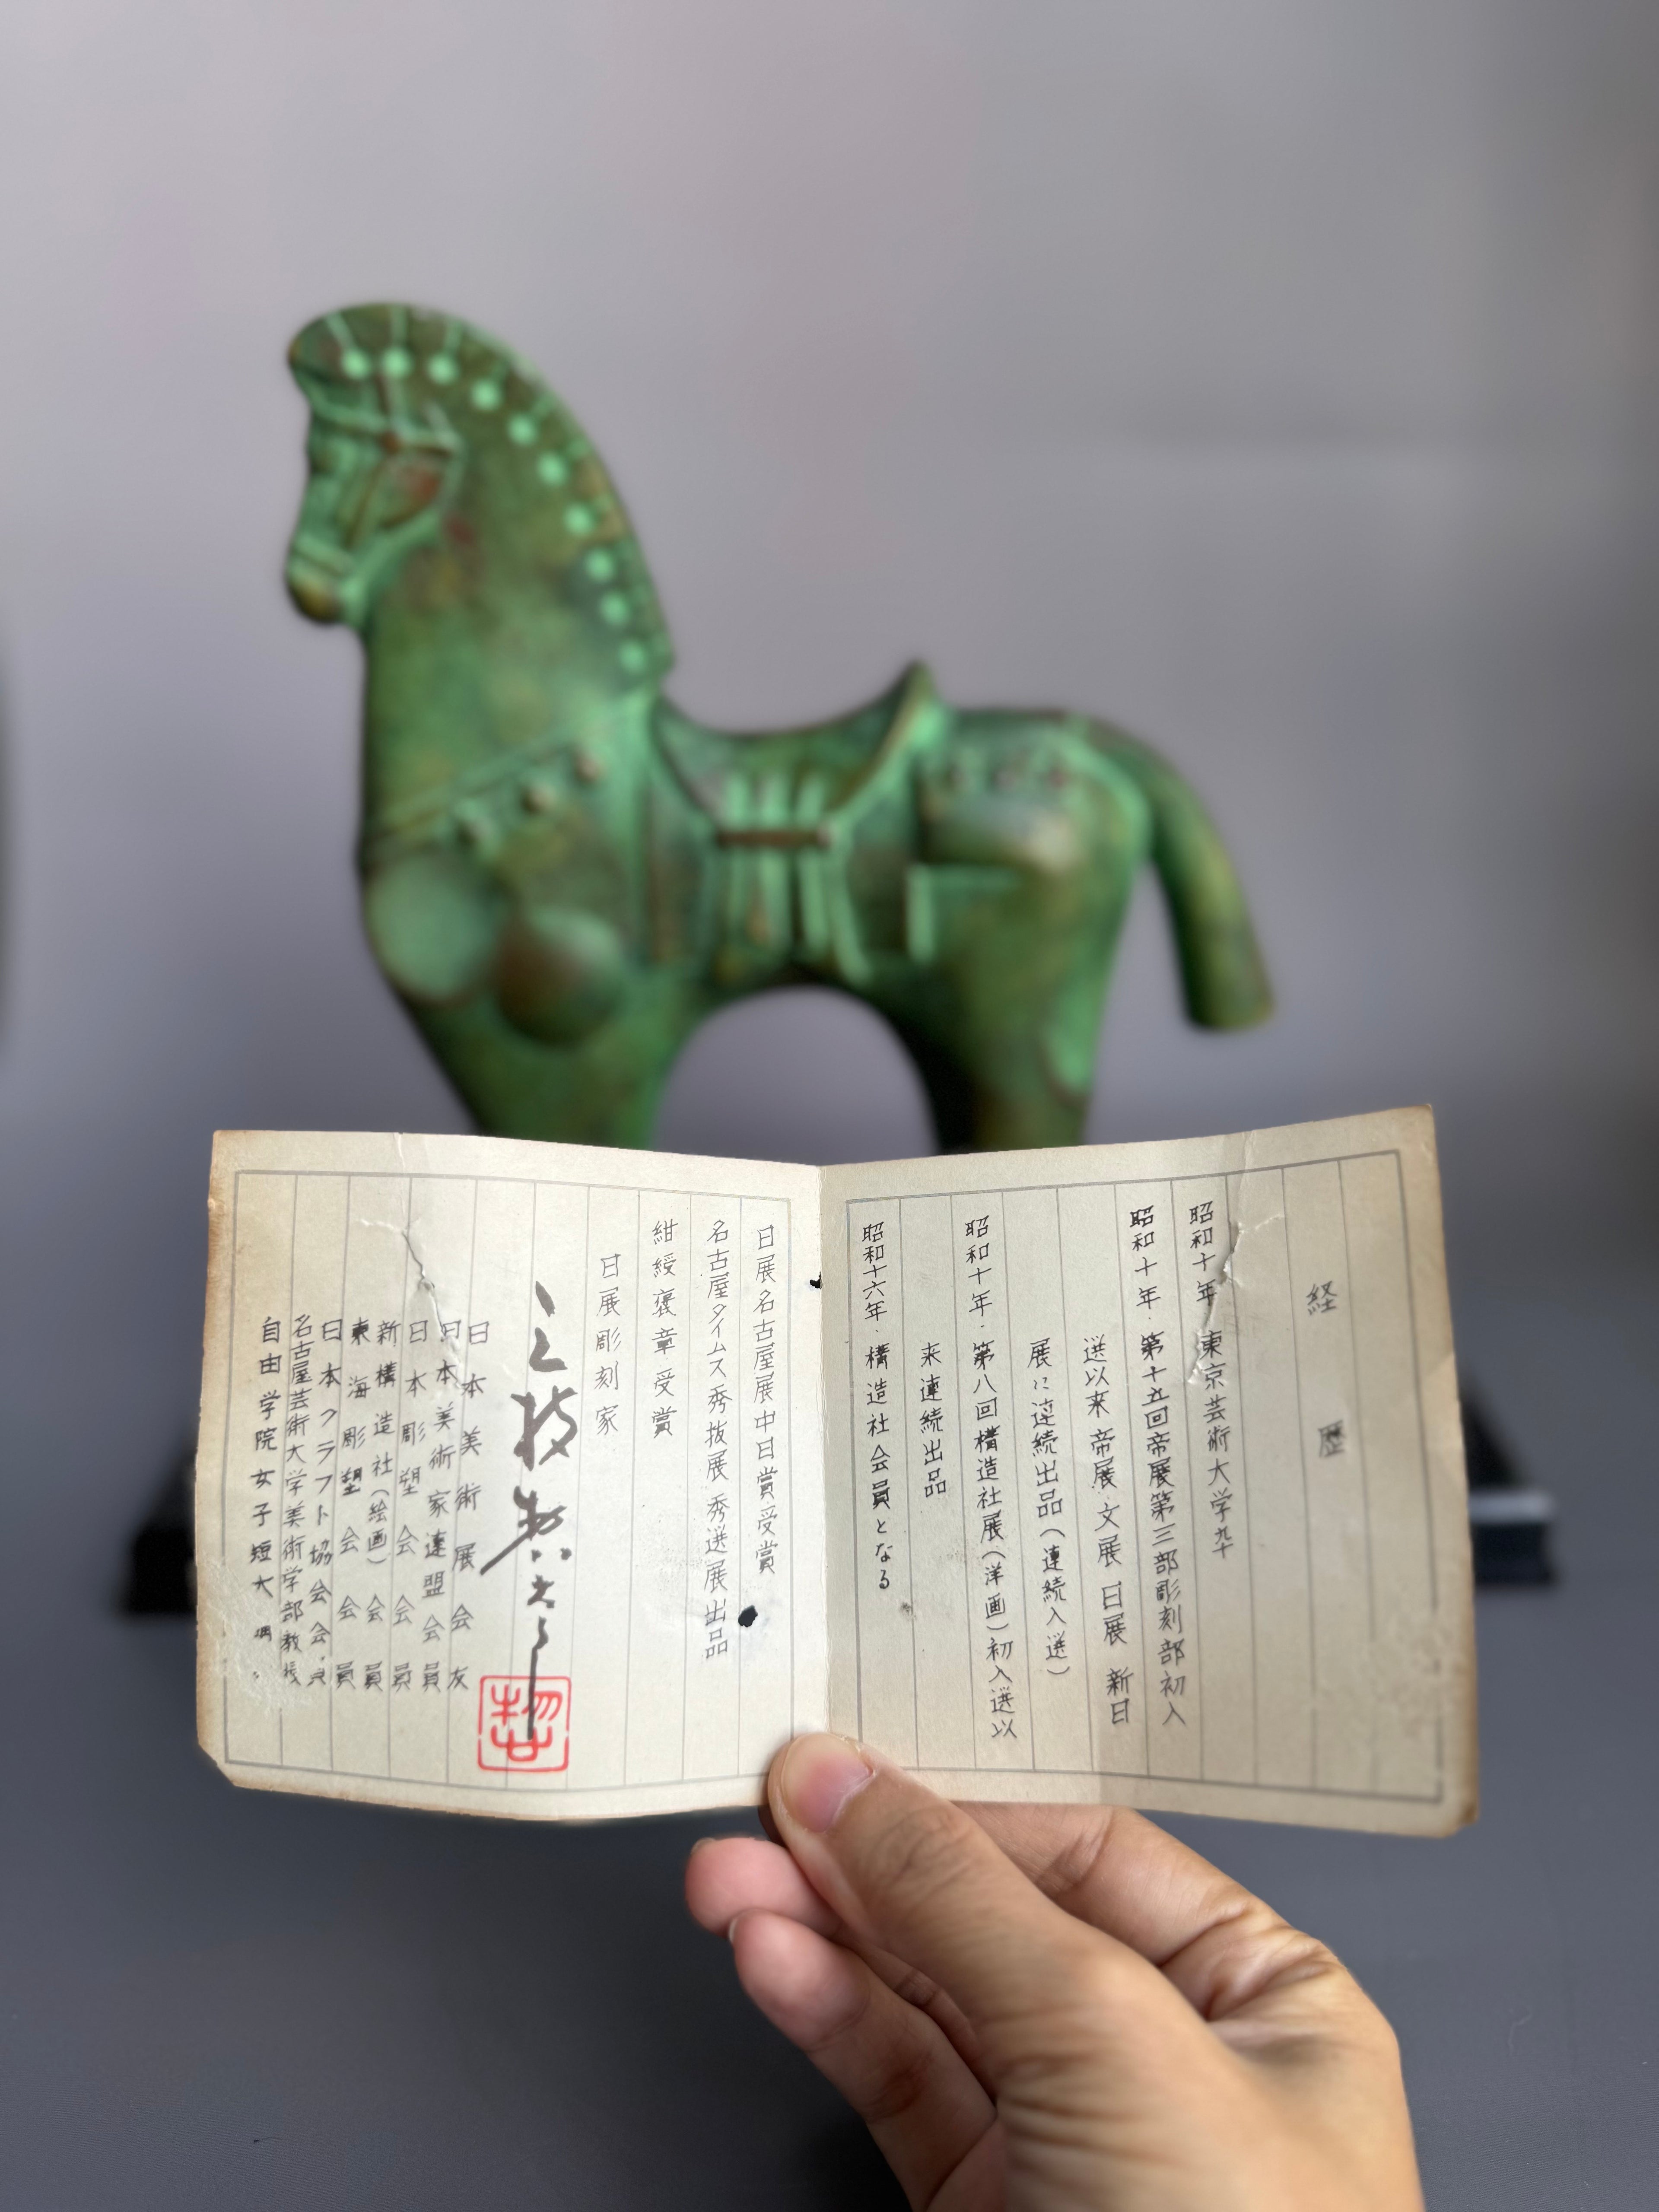 経歴
昭和十年 東京芸術大学卆
昭和十年 第十五回帝展第三部彫刻部初入
選以来 帝展 文展 日展 新日
展に連続出品(連続入選)
昭和十年 第八回構造社展(洋画)初入選以
来連続出品
昭和十六年 構造社会員となる
日展名古屋展中日賞受賞
名古屋タイムス秀抜展 秀選展出品
紺綬褒章受賞
日展彫刻家
日本美術展会友
日本美術家連盟会員
日本彫塑会会員
新構造社(絵画)会員
東海彫塑会会員
日本クラフト協会会員
名古屋芸術大学美術学部教授
自由学院女子短大